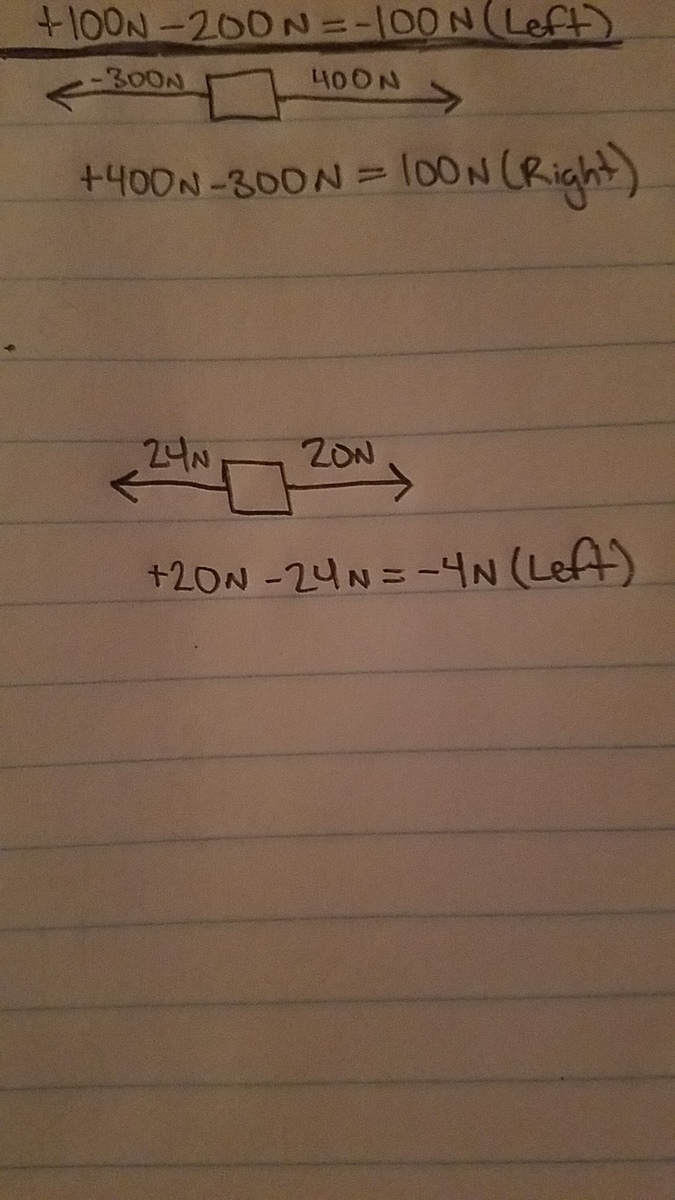 +100N-200N=-100N(Left)
-300N 400N
+400N-300N=100N(Right)
24N 20N
+20N-24N=-4N(Left)